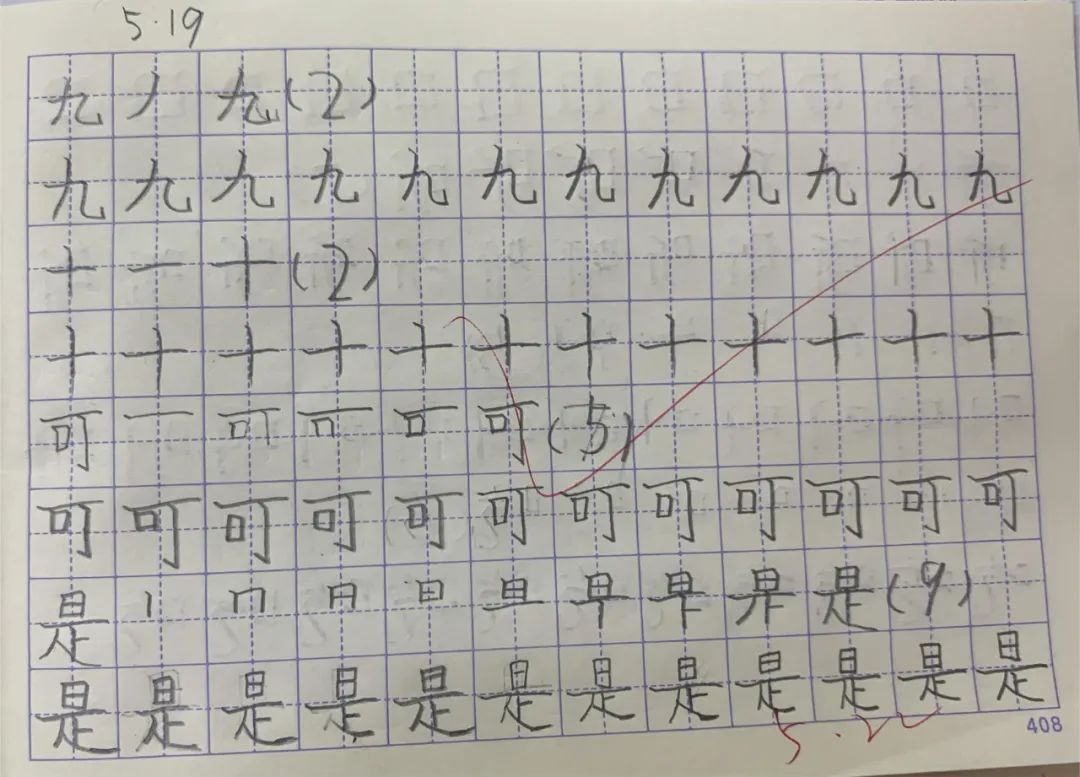 5.19
九 丿 九 (2)
九 九 九 九 九 九 九 九 九 九 九 九
十 一 十 (2)
十 十 十 十 十 十 十 十 十 十 十 十
可 一 可 (5)
可 可 可 可 可 可 可 可 可 可 可 可
是 丨 冂 日 日 旦 早 是 (9)
是 是 是 是 是 是 是 是 是 是 是 是
5.20
408